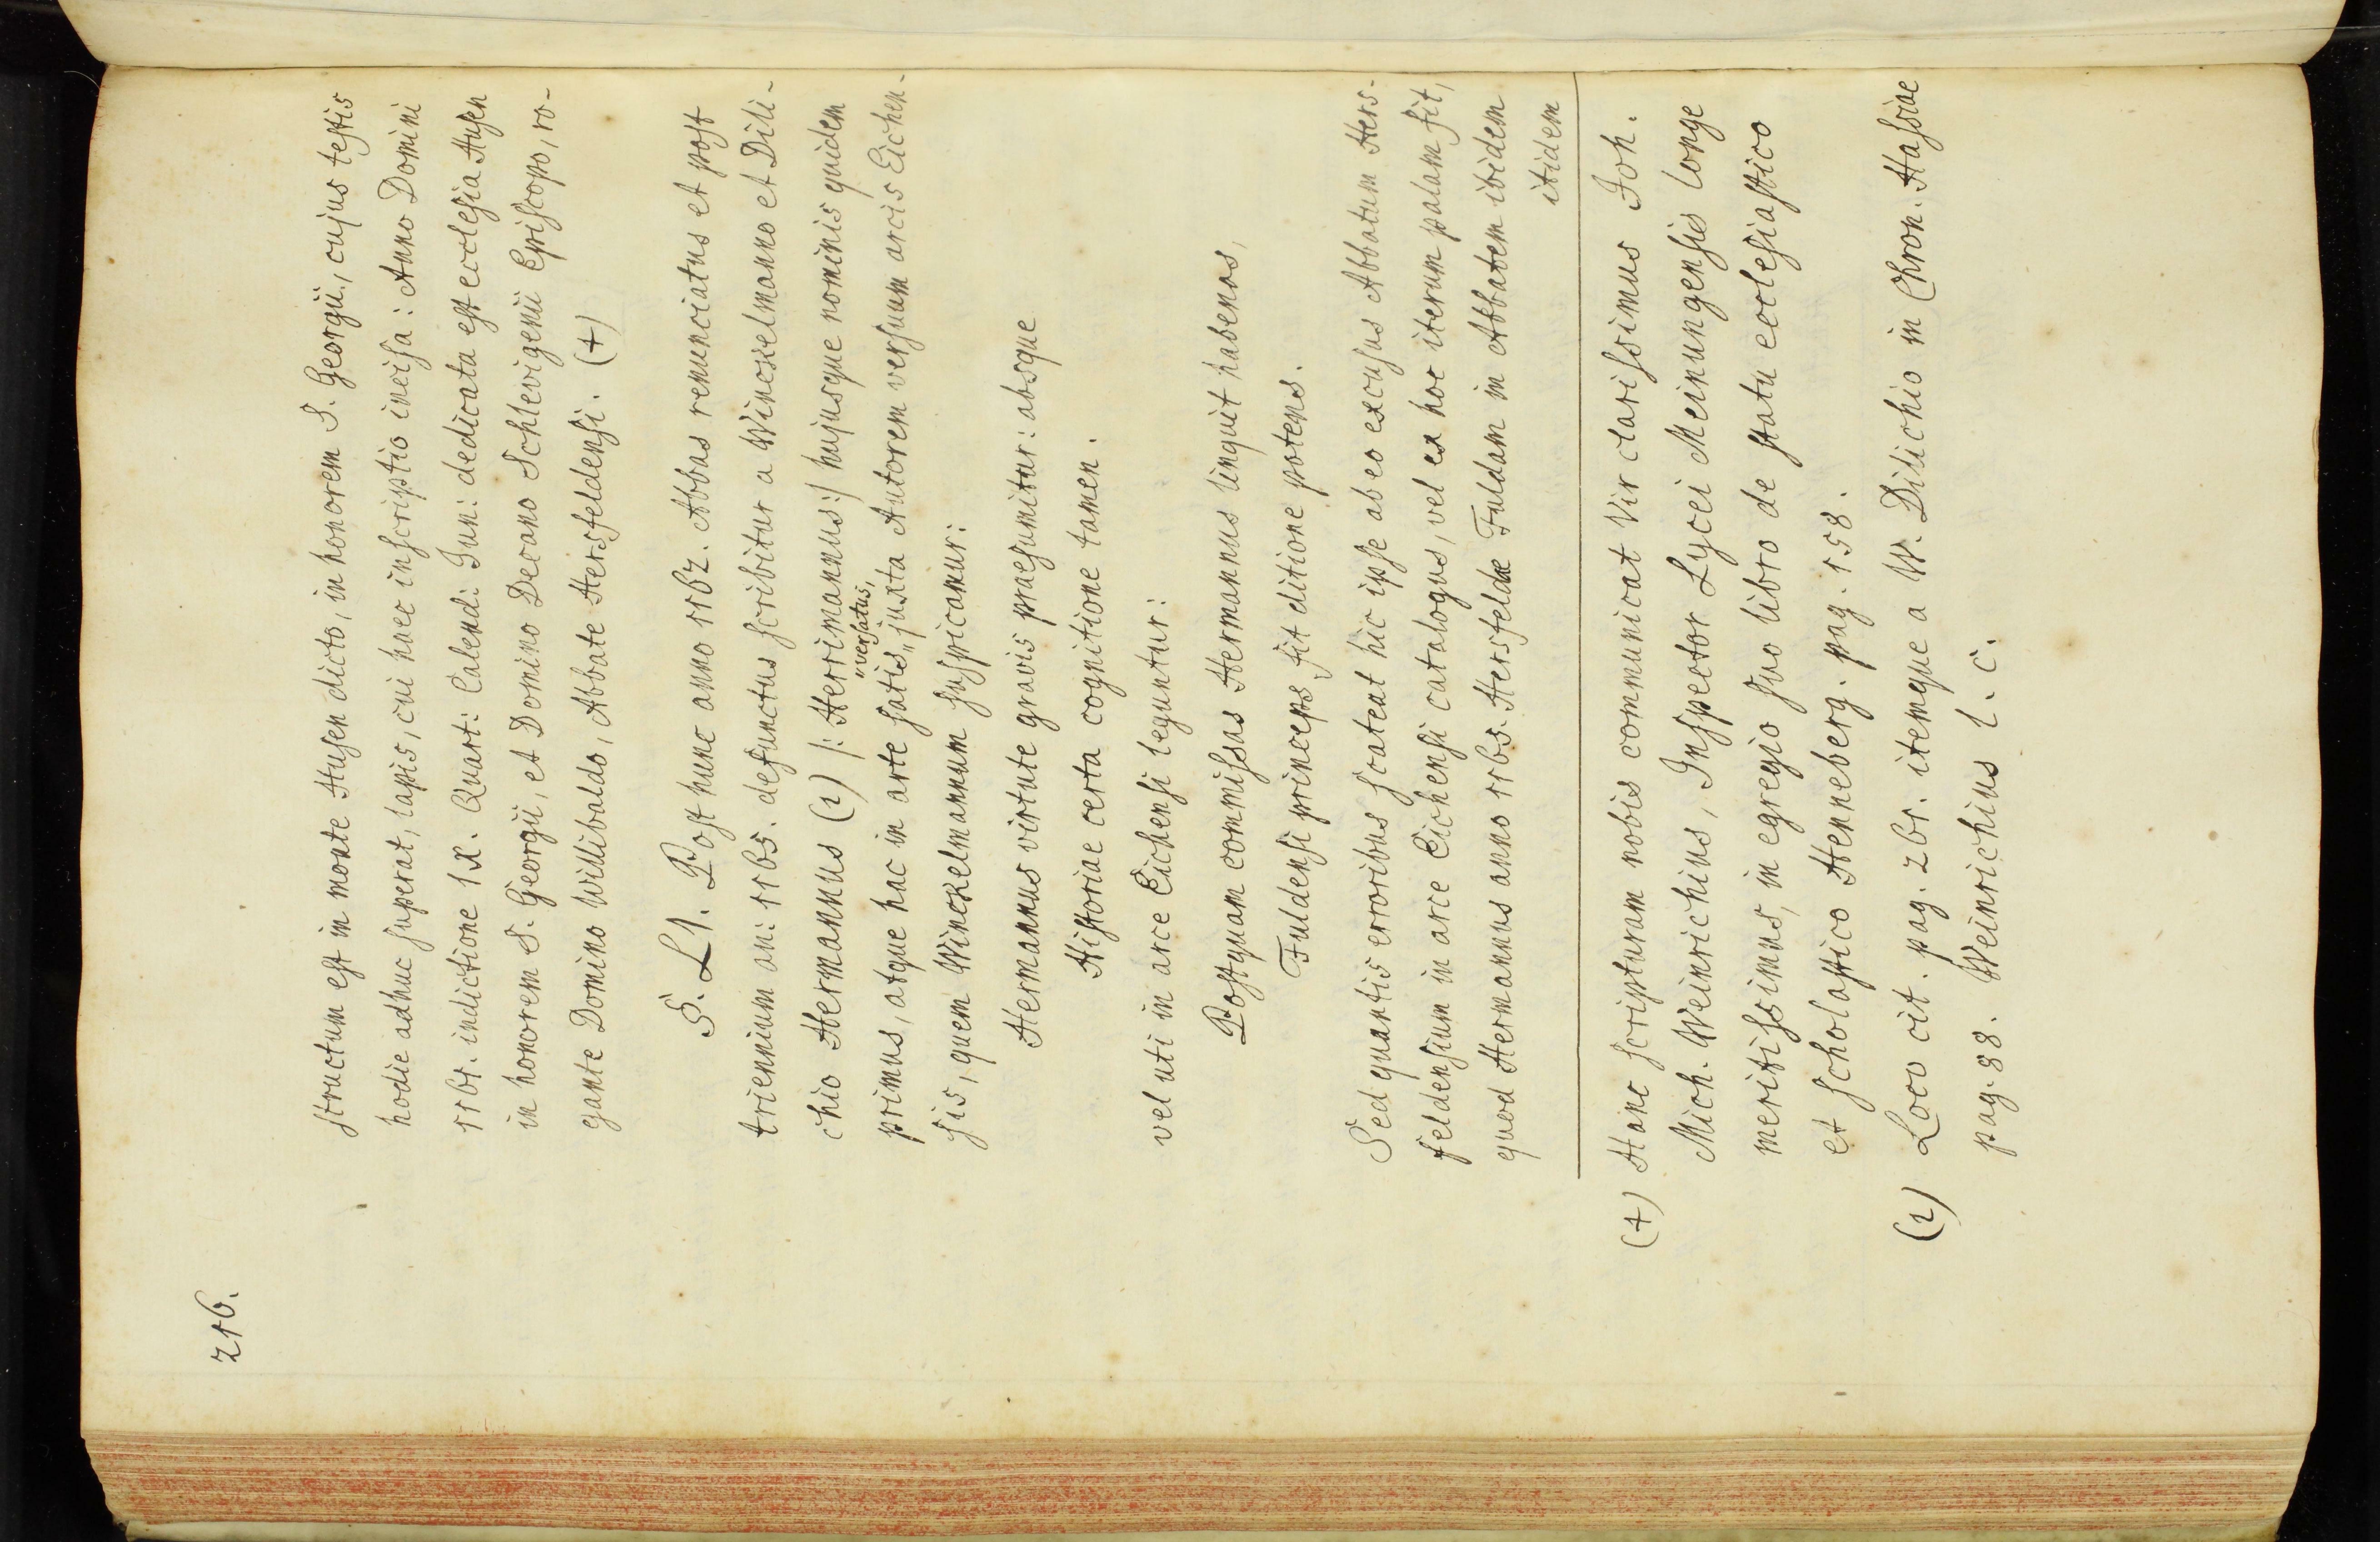 216.
structum est in monte Husen dicto, in honorem S. Georgii, cujus testis
hodie adhuc superat, lapis, cui haec inscriptio incisa: Anno Domini
1161. indictione IX. Quart: Calend: Iun: dedicata est ecclesia Husen
in honorem S. Georgii, et Domino Decano Schlevigenii Episcopo, ro-
gante Domino Willibaldo, Abbate Hersfeldensi. (+)
§. LI. Post hunc anno 1162. Abbas renunciatus et post
triennium an: 1165. defunctus scribitur a Winckelmanno et Dili-
chio Hermannus (1) /: Herrimannus :/ hujusque nominis quidem
primus, atque hac in arte satis „versatus, juxta Autorem versuum arcis Eichen-
sis, quem Winckelmannum suspicamur:
Hermannus virtute gravis praesumitur: absque
Historiae certa cognitione tamen.
vel uti in arce Eichensi leguntur:
Postquam commissas Hermannus linquit habenas,
Fuldensi princeps sit ditione potens.
Sed quantis erroribus scateat hic ipse ab eo excusus Abbatum Hers-
feldensium in arce Eichensi catalogus, vel ex hoc iterum palam fit,
quod Hermannus anno 1165. Hersfeldae Fuldam in Abbatem ibidem
itidem
(+) Hanc scripturam nobis communicat Vir clarissimus Joh.
Mich. Weinrichius, Inspector Lycei Meinungensis longe
meritissimus, in egregio suo libro de statu ecclesiastico
et scholastico Henneberg. pag. 158.
(1) Loco cit. pag. 261. itemque a W. Dilichio in Chron. Hassiae
pag. 88. Weinrichius l. c.